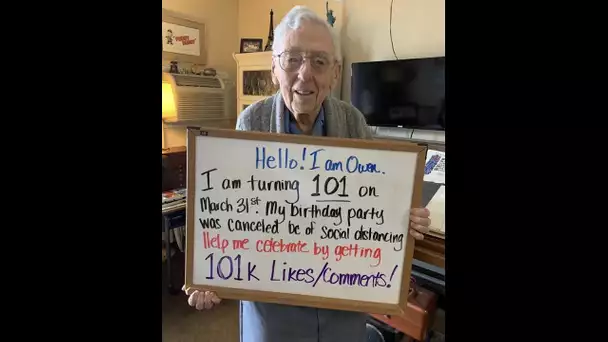 Hello! I am Owen.
I am turning 101 on
March 31st. My birthday party
was canceled bc of social distancing
Help me celebrate by getting
101k Likes/Comments!